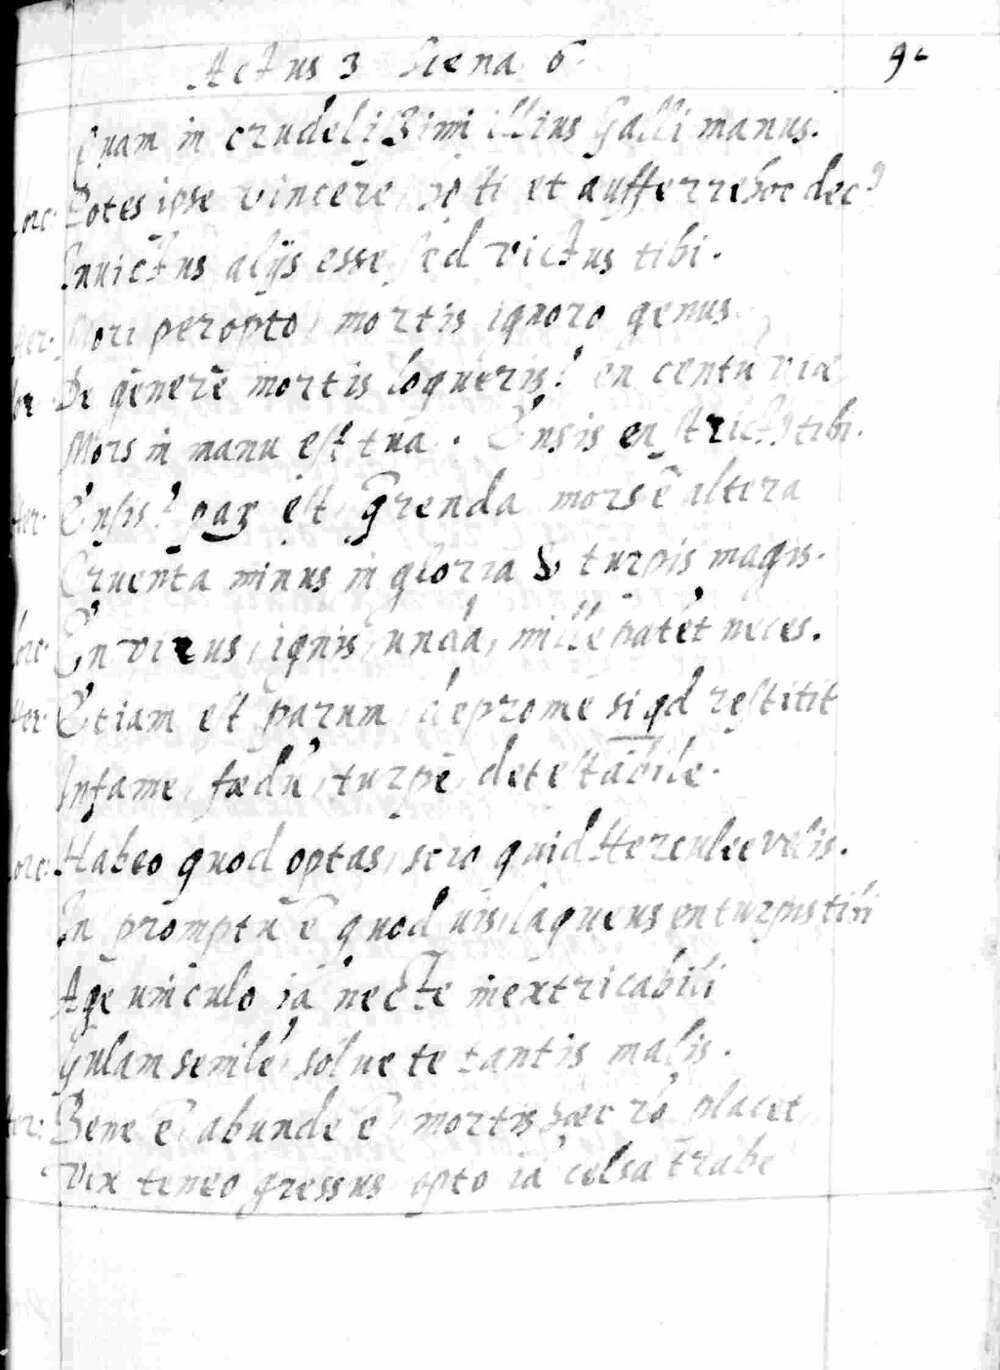 Actus 3 Scena 6. 92
Quam in crudelissimi illius Galli manus.
Lorc. Potes ipse vincere, et aufferre hoc dec⁹
Invictus alijs esse, sed victus tibi.
Her. Mori peropto, mortis ignoro genus
De genere mortis loqueris? en centũ viæ
Mors in manu est tua. Ensis en strict⁹ tibi.
Her. Ensis? est mors ẽ altera
Cruenta minus in gloria & turpis magis.
Lorc. En virus, ignis, unda, mille patẽt neces.
Her. Etiam est parum, deprome si qd restitit
Infame, fœdũ, turpe, detestabile.
Lorc. Habeo quod optas, scio quid Herculee velis.
In promptu ẽ quod uis, laqueus en turpis tibi
Age uinculo iã necte inextricabili
Gulam senilẽ, solue te tantis malis.
Her. Bene ẽ, abunde ẽ, mortis hæc rõ placet,
Vix teneo gressus, opto iã celsa trabe